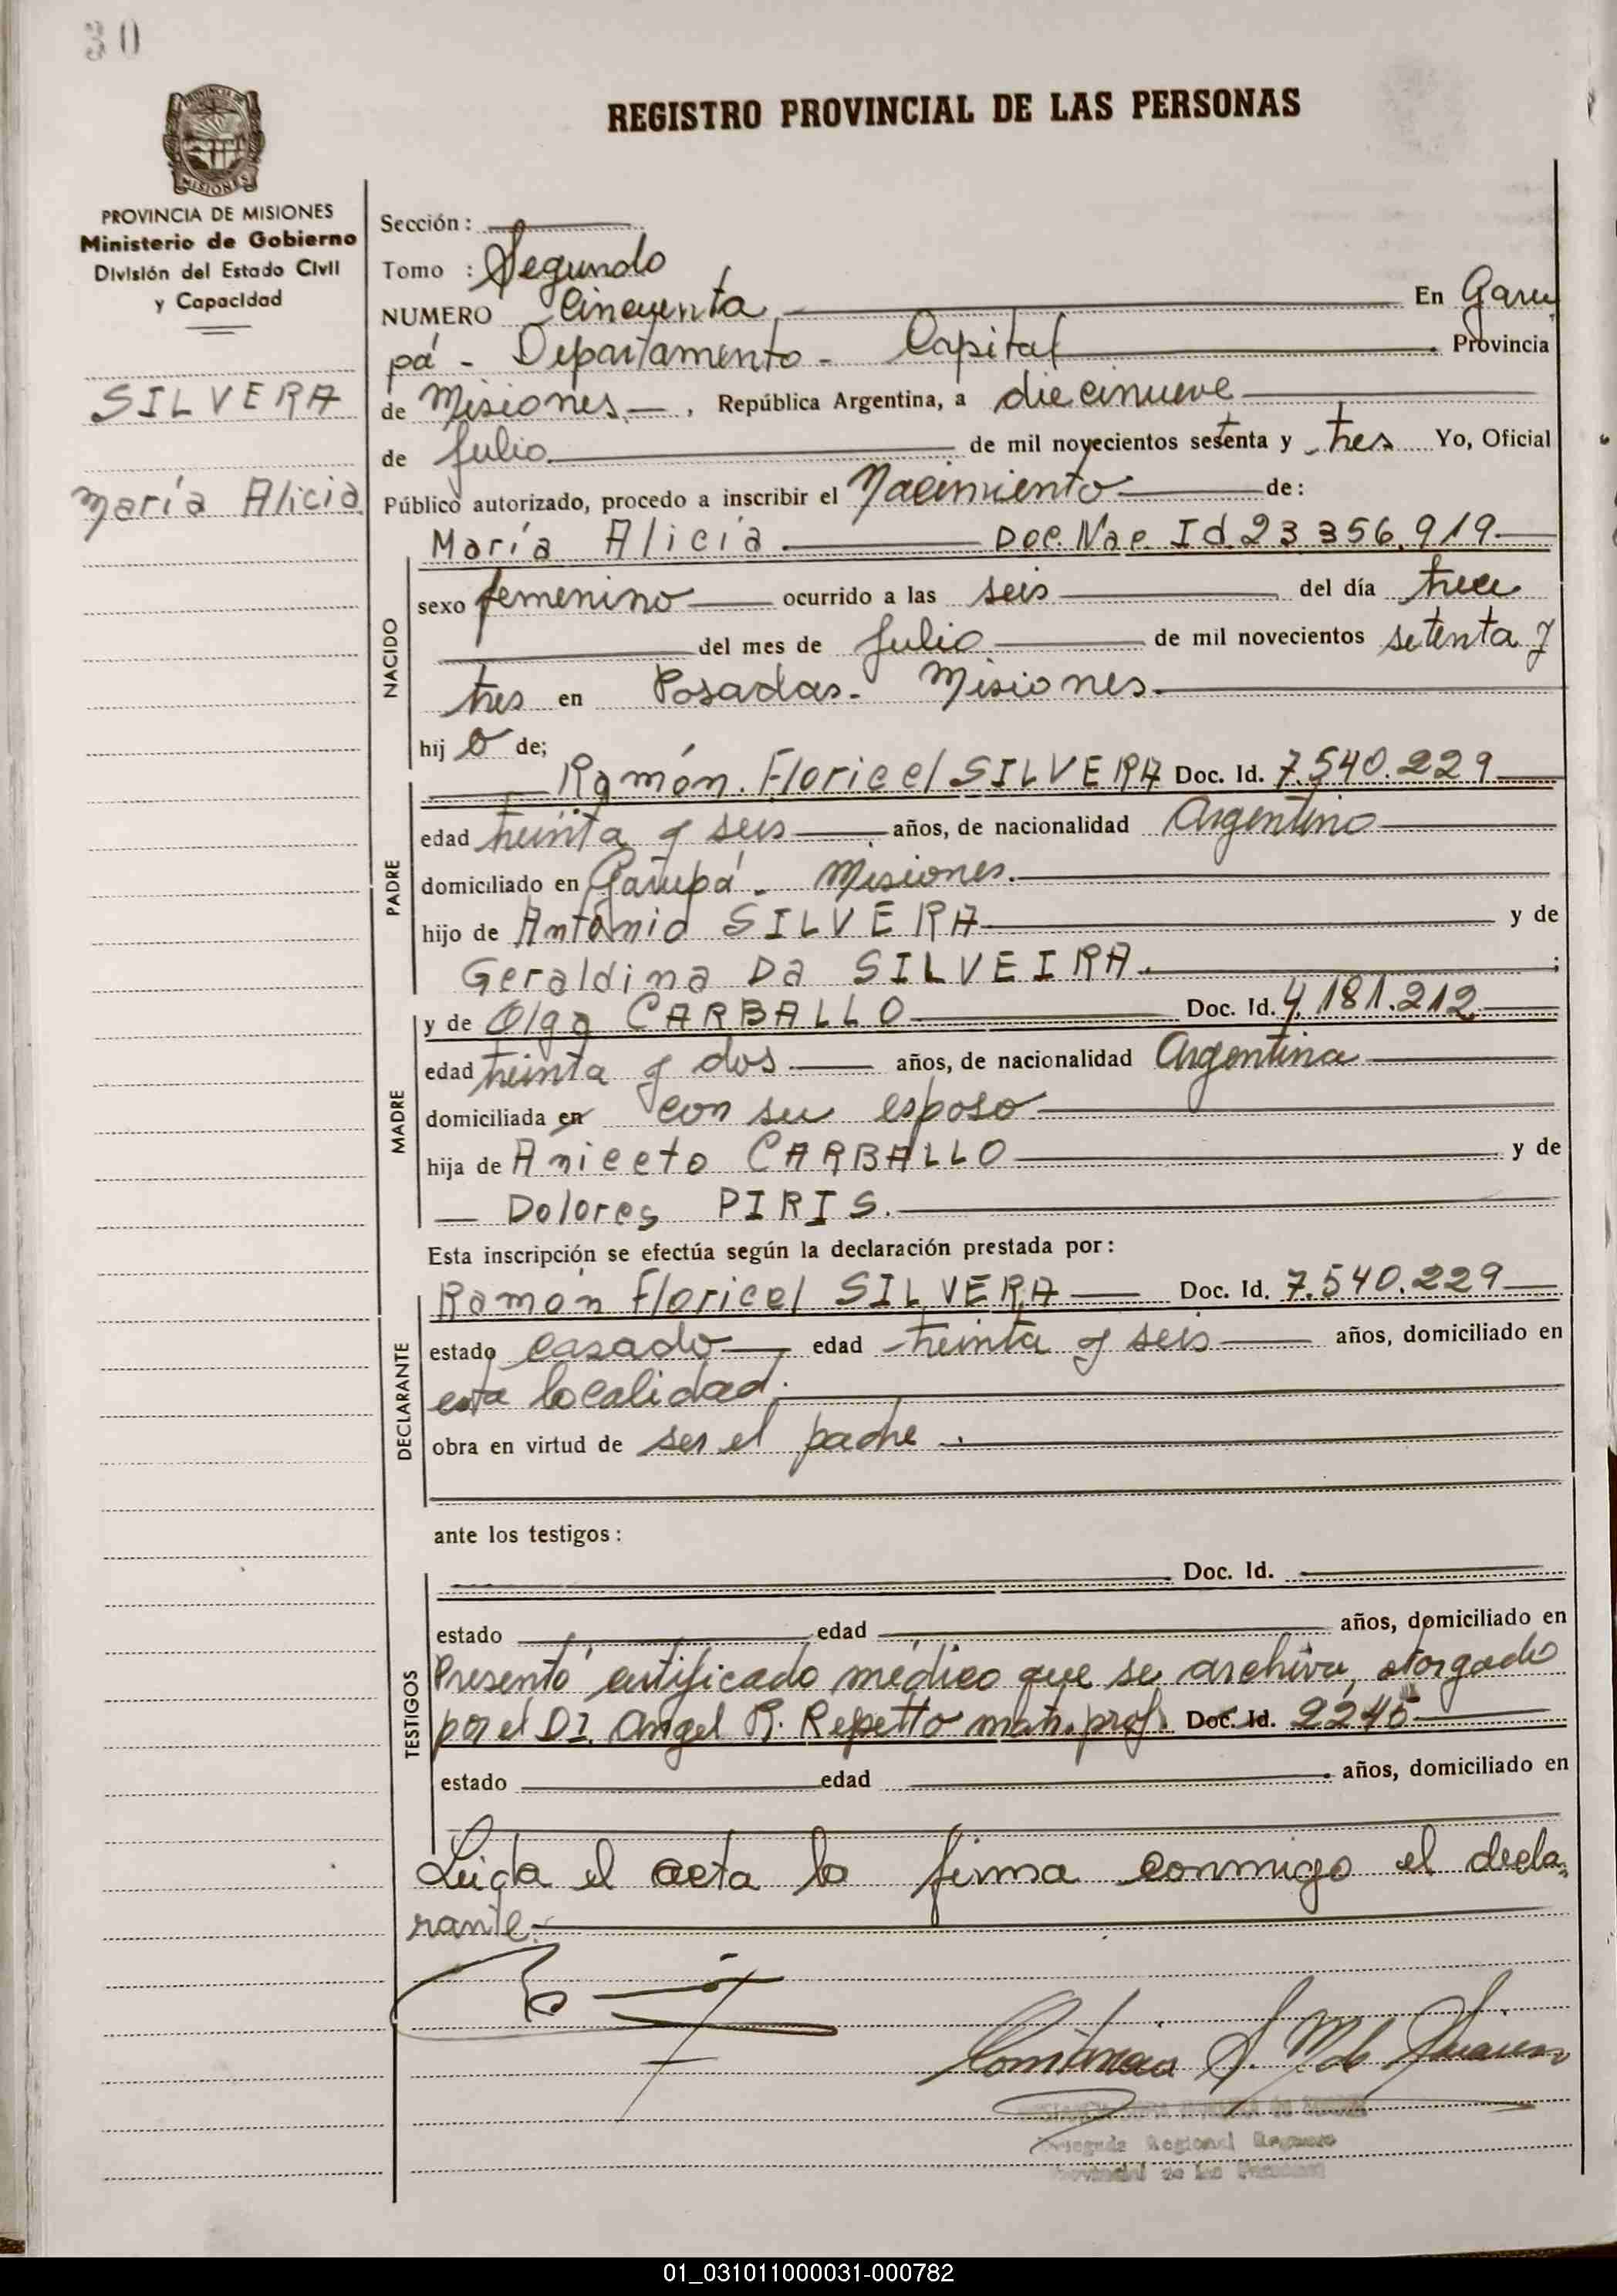 30
REGISTRO PROVINCIAL DE LAS PERSONAS
MISIONES
PROVINCIA DE MISIONES
Ministerio de Gobierno
División del Estado Civil
y Capacidad
SILVERA
María Alicia
Sección:
Tomo : Segundo
NUMERO Cincuenta En Garu
pá - Departamento - Capital Provincia
de Misiones , República Argentina, a diecinueve
de Julio de mil novecientos setenta y tres Yo, Oficial
Público autorizado, procedo a inscribir el Nacimiento de:
NACIDO
María Alicia Doc. Nac. Id. 23 356.919
sexo femenino ocurrido a las seis del día trece
del mes de Julio de mil novecientos setenta y
tres en Posadas - Misiones
hij o de;
PADRE
Ramón Floricel SILVERA Doc. Id. 7.540.229
edad treinta y seis años, de nacionalidad Argentino
domiciliado en Garupá - Misiones.
hijo de Antonio SILVERA y de
Geraldina Da SILVEIRA. ;
MADRE
y de Olga CARBALLO Doc. Id. 4.181.212
edad treinta y dos años, de nacionalidad Argentina
domiciliada en con su esposo
hija de Aniceto CARBALLO y de
Dolores PIRIS.
Esta inscripción se efectúa según la declaración prestada por:
DECLARANTE
Ramón Floricel SILVERA Doc. Id. 7.540.229
estado casado edad treinta y seis años, domiciliado en
esta localidad.
obra en virtud de ser el padre
ante los testigos:
TESTIGOS
Doc. Id.
estado edad años, domiciliado en
Presentó certificado médico que se archiva, otorgado
por el Dr. Angel R. Repetto mat. prof. Doc. Id. 2245
estado edad años, domiciliado en
Leída el acta la firma conmigo el decla
rante.
Regional
Provincial de las Personas
01_031011000031-000782